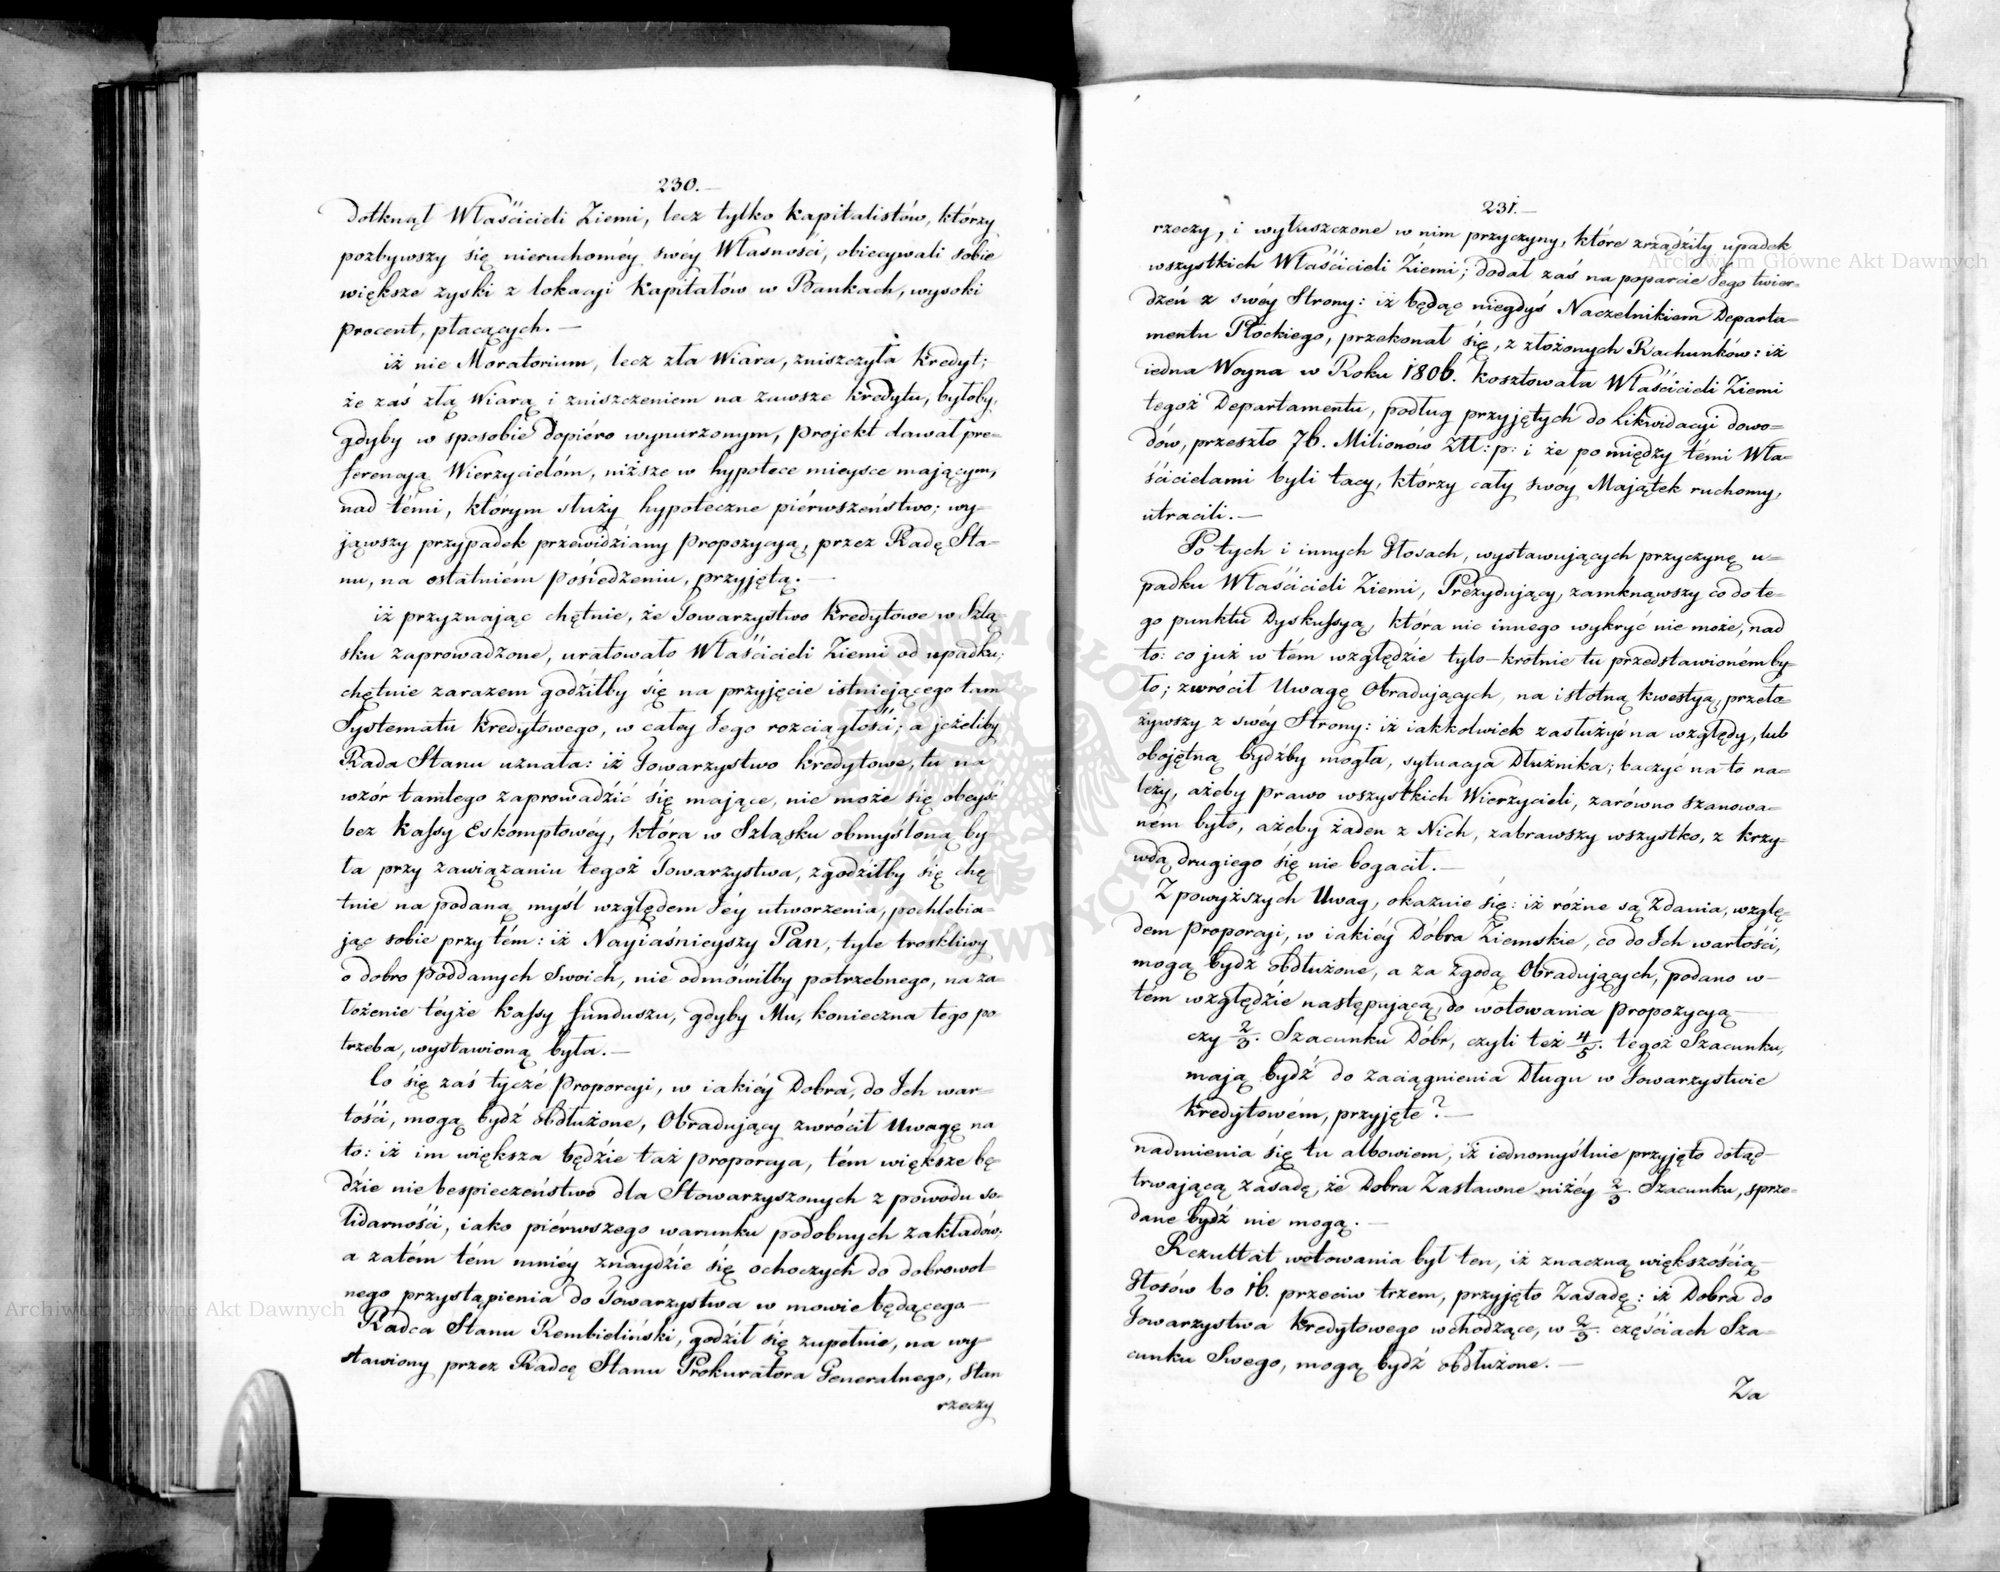 230.—
dotknął Właścicieli Ziemi, lecz tylko kapitalistów, którzy
pozbywszy się nieruchoméy swéy Własności, obiecywali sobie
większe zyski z lokacyi Kapitałów w Bankach, wysoki
procent, płacących.—
iż nie Moratorium, lecz zła Wiara, zniszczyła kredyt;
że zaś złą Wiarą i zniszczeniem na zawsze kredytu, byłoby,
gdyby w sposobie dopiéro wynurzonym, projekt dawał pre=
ferencyą Wierzycielóm, niższe w hypotece mieysce mającym,
nad témi, którym służy hypoteczne piérwszeństwo; wy=
jąwszy przypadek przewidziany propozycyą, przez Radę Sta=
nu, na ostatniém posiedzeniu, przyjętą.—
iż przyznając chętnie, że Towarzystwo kredytowe w Szlą=
sku zaprowadzone, uratowało Właścicieli Ziemi od upadku;
chętnie zarazem godziłby się na przyjęcie istniejącego tam
Systematu kredytowego, w całey Jego rozciągłości; a jeżeliby
Rada Stanu uznała: iż Towarzystwo kredytowe, tu na
wzór tamtego zaprowadzić się mające, nie może się obeyść
bez kassy Eskomptowéy, która w Szląsku obmyśloną by=
ła przy zawiązaniu tegoż Towarzystwa, zgodziłby się chę=
tnie na podaną myśl względem Jéy utworzenia, pochlebia=
jąc sobie przy tém: iż Nayiaśnieyszy Pan, tyle troskliwy
o dobro Poddanych Swoich, nie odmówiłby potrzebnego, na za=
łożenie téyże kassy funduszu, gdyby Mu, konieczna tego po
trzeba, wystawioną była.—
Co się zaś tycze proporcyi, w iakiéy Dobra, do Ich war=
tości, mogą bydź obdłużone, Obradujący zwrócił Uwagę na
to: iż im większa będzie taż proporcya, tém większe bę=
dzie niebespieczeństwo dla Stowarzyszonych z powodu so=
lidarności, iako piérwszego warunku podobnych zakładów;
a zatém tém mniéy znaydzie się ochoczych do dobrowol=
nego przystąpienia do Towarzystwa w mowie będącego.—
Radca Stanu Rembieliński, godził się zupełnie, na wy=
stawiony przez Radcę Stanu Prokuratora Generalnego, Stan
rzeczy
231.—
rzeczy, i wyłuszczone w nim przyczyny, które zrządziły upadek
wszystkich Właścicieli Ziemi; dodał zaś na poparcie Jego twier=
dzeń z swéy Strony: iż będąc niegdyś Naczelnikiem Departa=
mentu Płockiego, przekonał się, z złożonych Rachunków: iż
iedna Woyna w Roku 1806. kosztowała Właścicieli Ziemi
tegoż Departamentu, podług przyjętych do Likwidacyi dowo=
dów, przeszło 76. Milionów Złł: p: i że pomiędzy témi Wła=
ścicielami byli tacy, którzy cały swóy Majątek ruchomy,
utracili.—
Po tych i innych Głosach, wystawujących przyczynę u=
padku Właścicieli Ziemi, Prezydujący, zamknąwszy co do te=
go punktu Dyskussyą, która nic innego wykryć nie może, nad
to: co już w tém względzie tylo-krotnie tu przedstawioném by=
ło; zwrócił Uwagę Obradujących, na istotną kwestyą, przeło=
żywszy z swéy Strony: iż iakkolwiek zasłużyć na względy, lub
obojętną bydźby mogła, sytuacya Dłużnika; baczyć na to na=
leży, ażeby prawo wszystkich Wierzycieli, zarówno szanowa=
ném było, ażeby żaden z Nich, zabrawszy wszystko, z krzy=
wdą drugiego się nie bogacił.—
Z powyższych Uwag, okazuie się: iż różne są Zdania, wzglę=
dem proporcyi, w iakiéy Dobra Ziemskie, co do Ich wartości,
mogą bydź obdłużone, a za zgodą Obradujących, podano w—
tém względzie następującą, do wotowania propozycyą—
czy 2/3. Szacunku Dóbr, czyli też 4/5. tegoż Szacunku,
mają bydź do zaciągnienia Długu w Towarzystwie
kredytowém, przyjęte?—
nadmienia się tu albowiem, iż iednomyślnie przyjęto dotąd—
trwającą zasadę, że Dobra Zastawne niżéy 2/3. Szacunku, sprze=
dane bydź nie mogą.—
Rezultat wotowania był ten, iż znaczną większością—
Głosów bo 16. przeciw trzem, przyjęto Zasadę: iż Dobra do
Towarzystwa kredytowego wchodzące, w 2/3. częściach Sza=
cunku Swego, mogą bydź obdłużone.—
Za
Archiwum Główne Akt Dawnych
Archiwum Główne Akt Dawnych